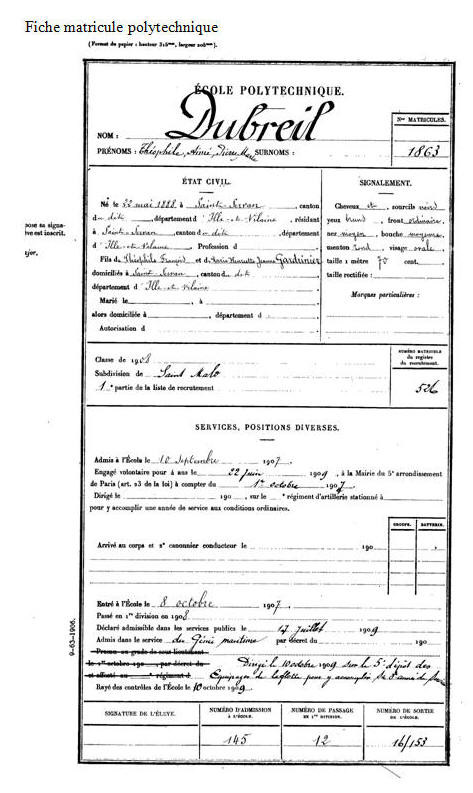 Fiche matricule polytechnique
(Format du papier : hauteur 315mm, largeur 206mm.)
ÉCOLE POLYTECHNIQUE.
Dubreil
NOM :
PRÉNOMS : Théophile, Aimé, Pierre, Marie SURNOMS :
Nos MATRICULES.
1863
pose sa signa-
ive est inscrit.
ajor.
ÉTAT CIVIL.
Né le 22 mai 1888 à Saint-Servan, canton
du dit, département d'Ille-et-Vilaine, résidant
à Saint-Servan, canton du dit, département
d'Ille-et-Vilaine, Profession d
Fils de Théophile François et de Marie Henriette Jeanne Gardrinier
domiciliés à Saint-Servan, canton du dit
département d'Ille-et-Vilaine
Marié le , à
alors domiciliée à , département d
Autorisation d
SIGNALEMENT.
Cheveux et sourcils noirs
yeux bruns, front ordinaire,
nez moyen, bouche moyenne,
menton rond, visage ovale
taille 1 mètre 70 cent.
taille rectifiée :
Marques particulières :
Classe de 1908
Subdivision de Saint Malo
1re partie de la liste de recrutement
NUMÉRO MATRICULE
du registre
du recrutement.
526
SERVICES, POSITIONS DIVERSES.
Admis à l'École le 10 Septembre 1907.
Engagé volontaire pour 4 ans le 22 juin 1909, à la Mairie du 5e arrondissement
de Paris (art. 23 de la loi) à compter du 1er octobre 1907
Dirigé le 190 , sur le e régiment d'artillerie stationné à
pour y accomplir une année de service aux conditions ordinaires.
GROUPE. BATTERIE.
Arrivé au corps et 2e canonnier conducteur le 190
Entré à l'École le 8 octobre 1907.
Passé en 1re division en 1908
Déclaré admissible dans les services publics le 17 Juillet 1909
Admis dans le service du Génie maritime par décret du 190
Promu au grade de sous-lieutenant
le 1er octobre 190 , par décret du Dirigé le 10 octobre 1909 sur le 5e dépôt des
et affecté au e régiment d Equipages de la flotte pour y accomplir sa 3e année de service
Rayé des contrôles de l'École le 10 octobre 1909
9-63-1906.
SIGNATURE DE L'ÉLEVE.
NUMÉRO D'ADMISSION
À L'ÉCOLE.
145
NUMÉRO DE PASSAGE
EN 1re DIVISION.
12
NUMÉRO DE SORTIE
DE L'ÉCOLE.
16/153